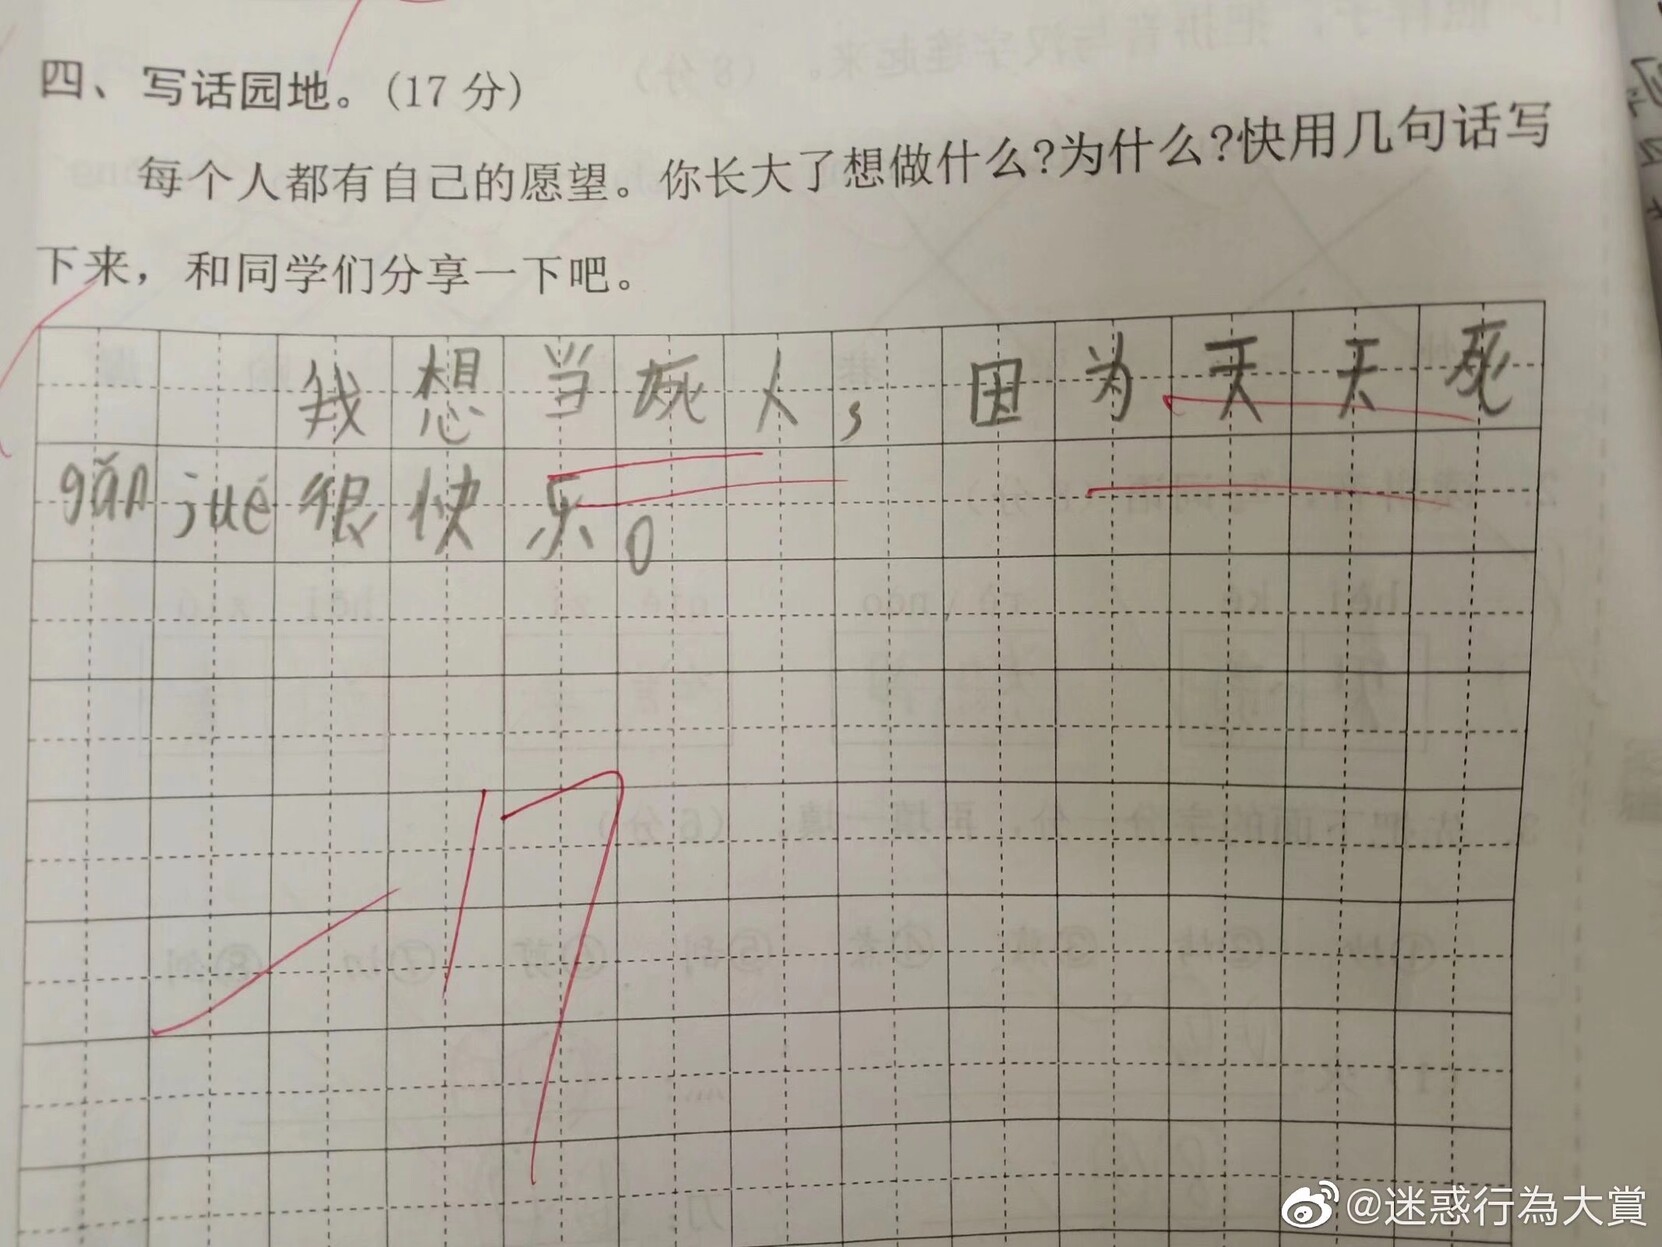 四、写话园地。(17 分)
每个人都有自己的愿望。你长大了想做什么?为什么?快用几句话写
下来，和同学们分享一下吧。
我想当死人，因为天天死
gǎn jué 很快乐。
-17
@迷惑行為大賞